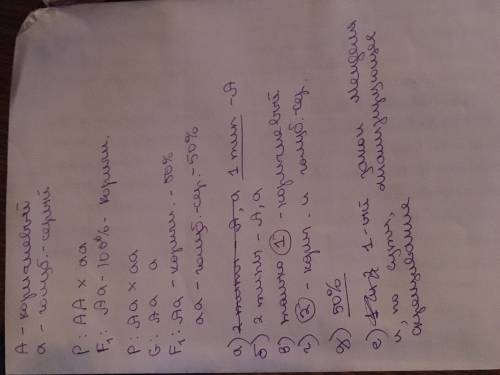 А - коричневый
а - голуб.-серый
P: AA x aa
F₁: Aa - 100% - коричн.
P: Aa x aa
G: Aa a
F₁: Aa - коричн. - 50%
aa - голуб.-сер. - 50%
а) 2 типы - А, а 1 тип - А
б) 2 типы - А, а
в) только 1 - коричневый
г) 2 - корич. и голуб.-сер.
д) 50%
е) 1-ый закон Менделя
и, по сути, анализирующее
скрещивание